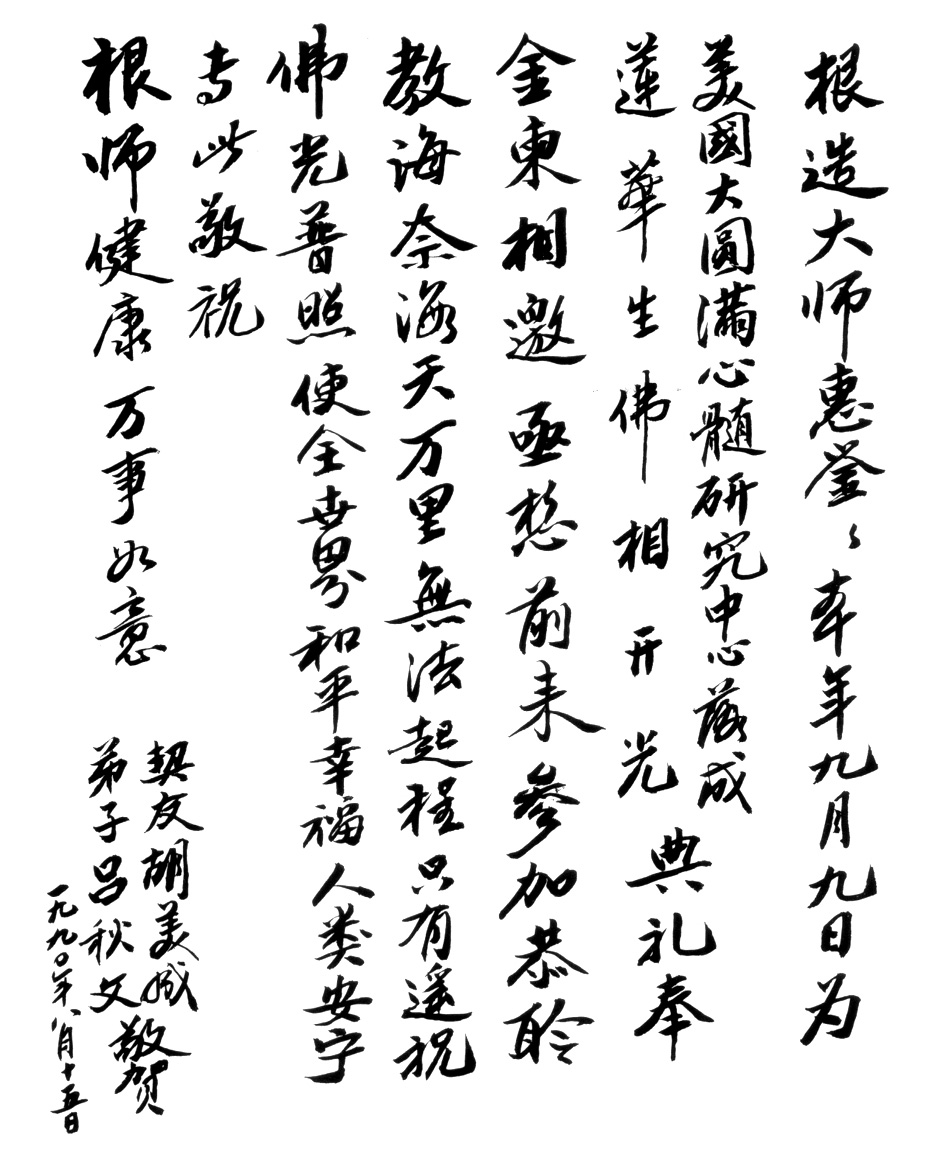 根造大师惠鉴々本年九月九日为
美國大圓滿心髓研究中心落成
蓮華生佛相开光典礼奉
金柬相邀亟愁前来參加恭聆
教诲奈海天万里無法起程只有遥祝
佛光普照使全世界和平幸福人类安宁
专此敬祝
根师健康万事如意
契友胡美娍
弟子吕秋文敬贺
一九九〇年八月十五日